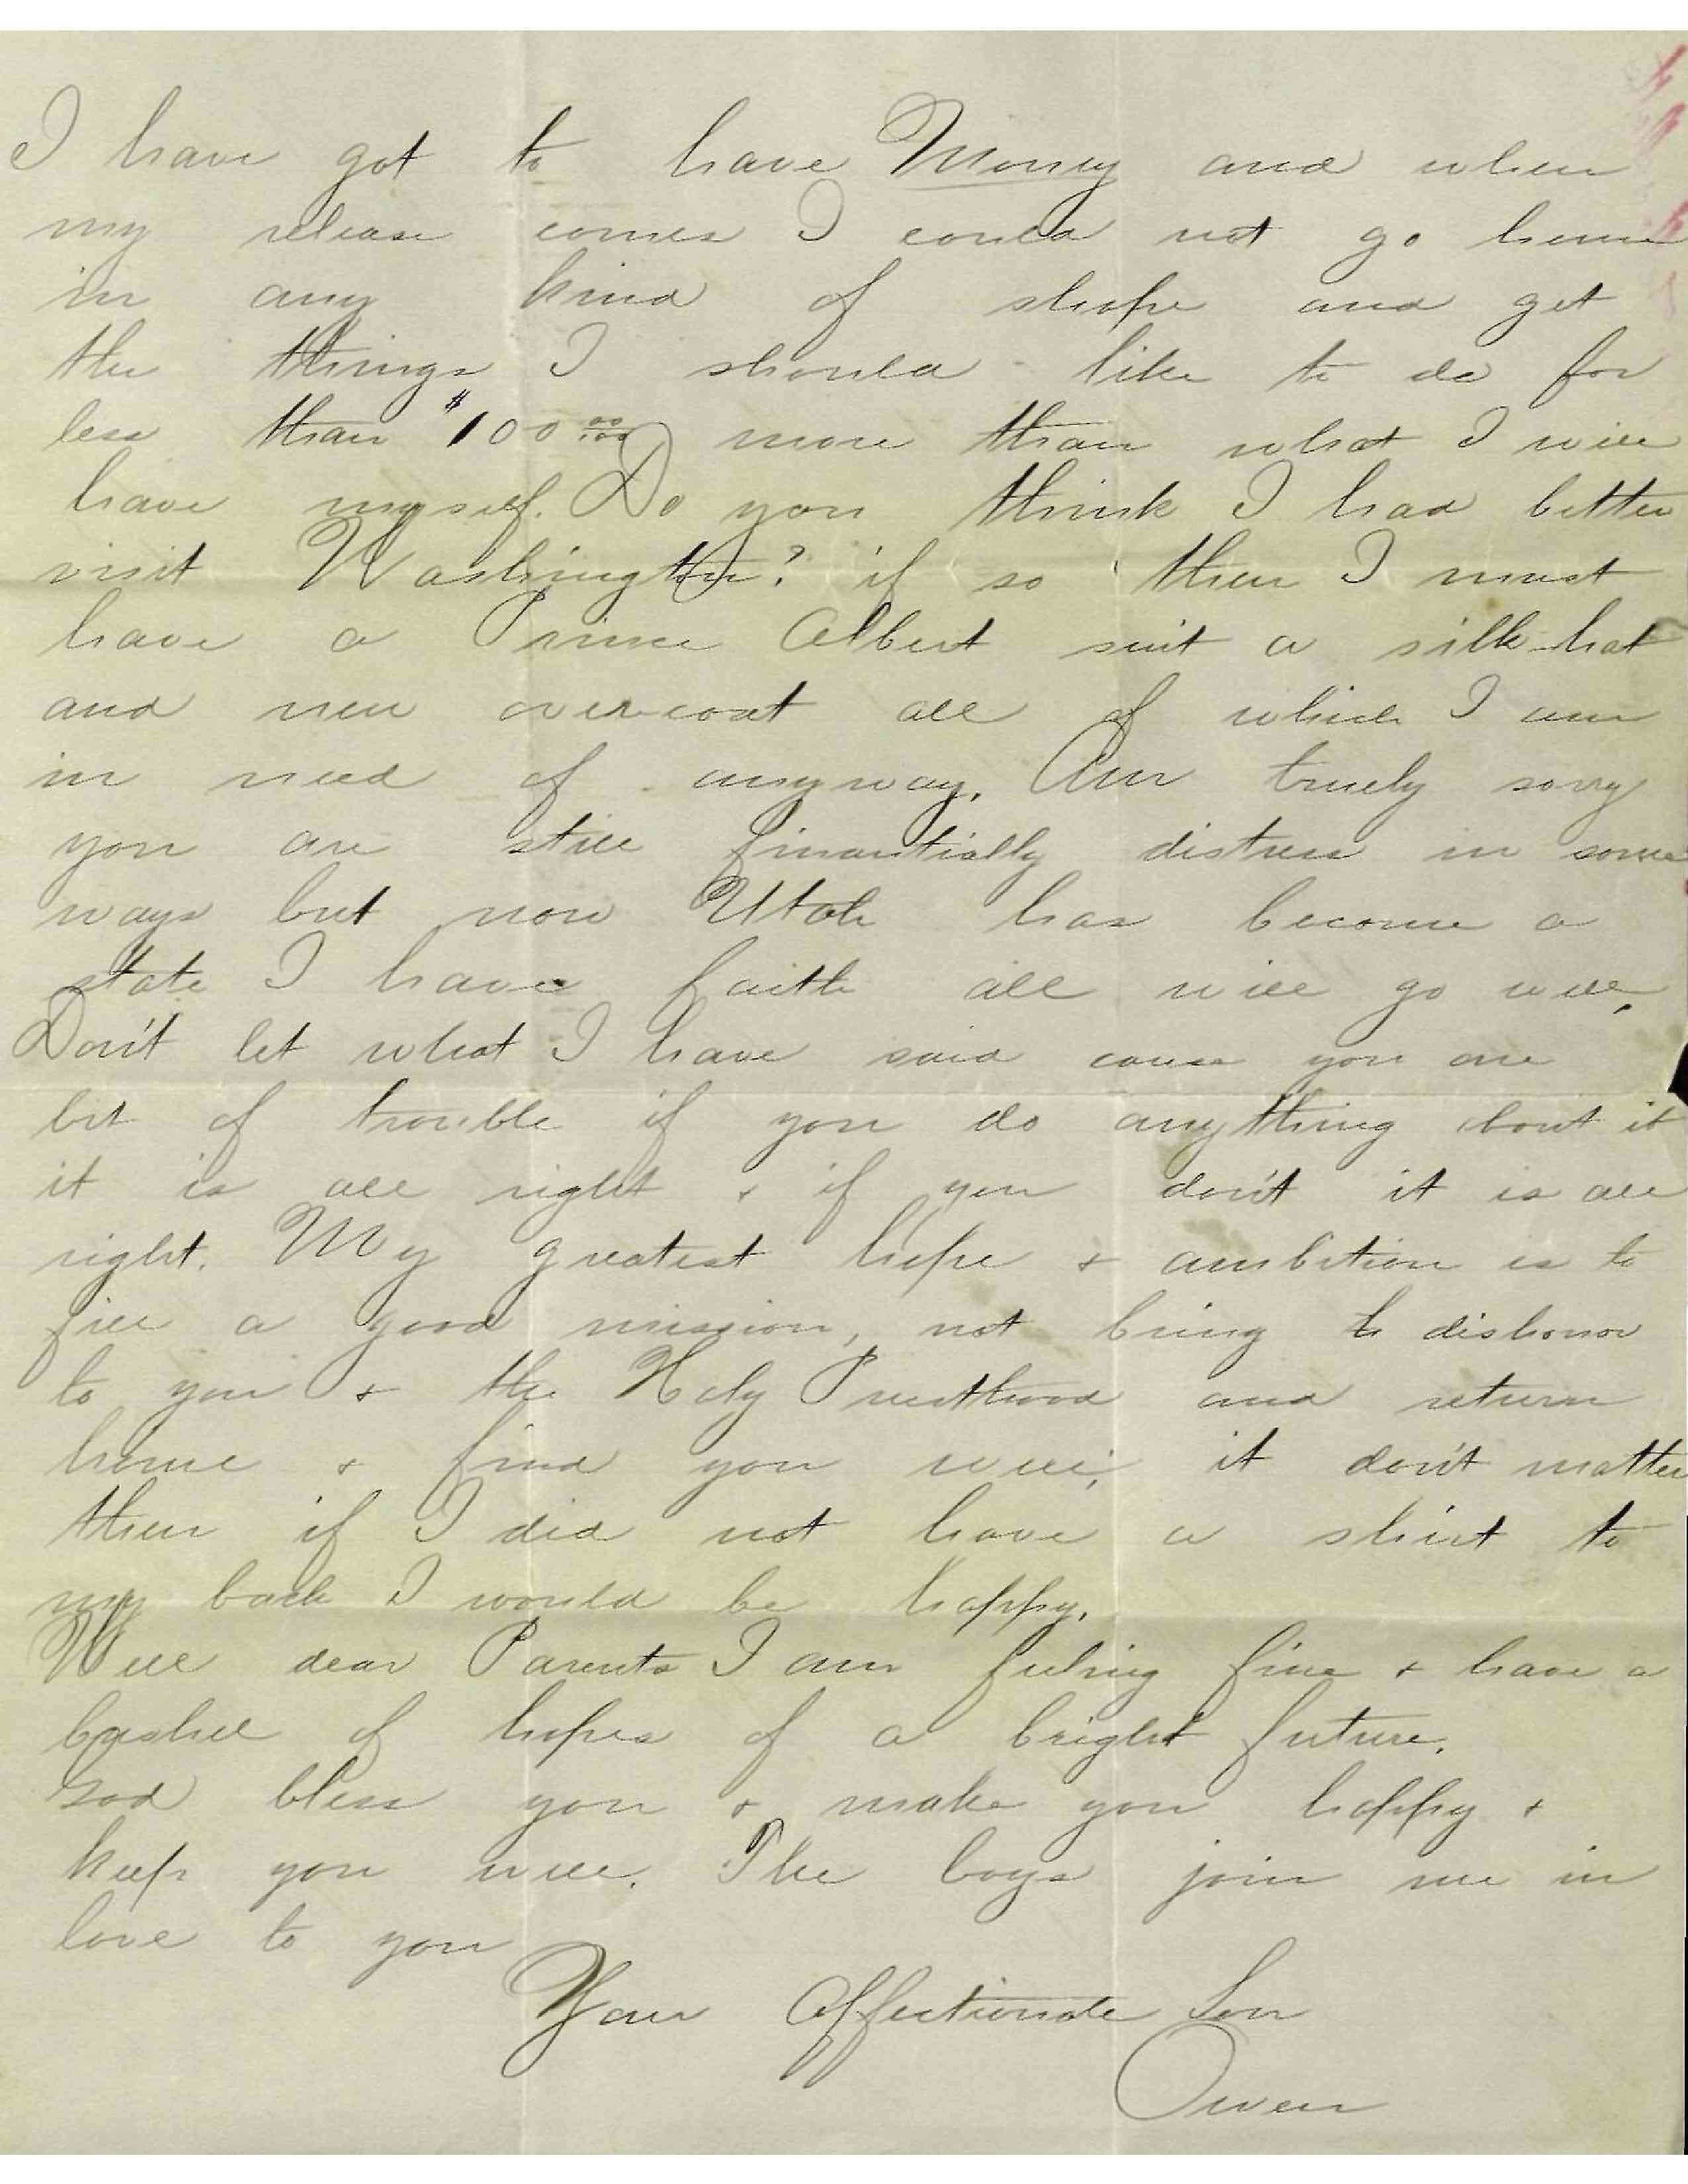 I have got to have Money and when
my release comes I could not go home
in any kind of shape and get
the things I should like to do for
less than $100 00/100 more than what I will
have myself. Do you think I had better
visit Washington? if so then I must
have a Prince Albert suit a silk-hat
and new over-coat all of which I am
in need of anyway. Am truely sorry
you are still finantially distress in some
ways but now Utah has become a
state I have faith all will go well.
Don't let what I have said cause you one
bit of trouble if you do anything about it
it is all right & if you don't it is all
right. My greatest hope & ambition is to
fill a good mission, not bring to dishonor
to you & the Holy Priesthood and return
home & find you well, it don't matter
then if I did not have a shirt to
my back I would be happy.
Well dear Parents I am feeling fine & have a
bushel of hopes of a bright future.
God bless you & make you happy &
keep you well. The boys join me in
love to you
Your Affectionate Son
Owen